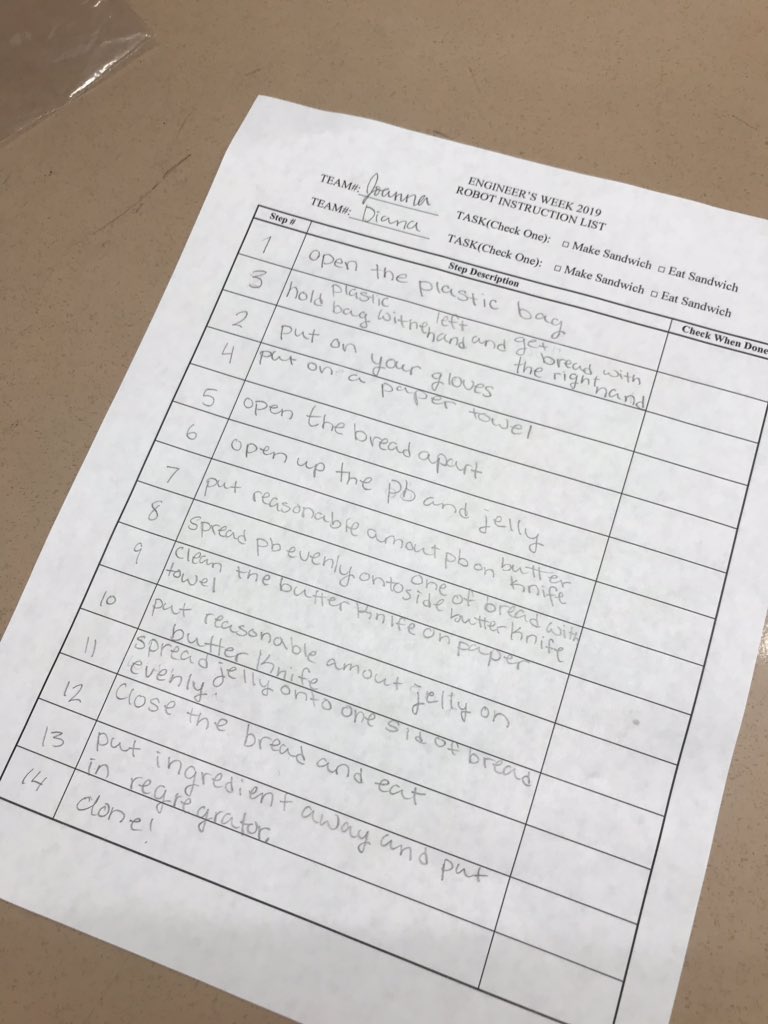 ENGINEER'S WEEK 2019
ROBOT INSTRUCTION LIST
TEAM#: Joanna TASK(Check One): □ Make Sandwich □ Eat Sandwich
TEAM#: Diana TASK(Check One): □ Make Sandwich □ Eat Sandwich
Step # Step Description Check When Done
1 open the plastic bag
3 hold plastic bag with left hand and get bread with the right hand
2 put on your gloves
4 put on a paper towel
5 open the bread apart
6 open up the pb and jelly
7 put reasonable amout pb on butter knife
8 spread pb evenly onto one side of bread with butter knife
9 clean the butter knife on paper
towel
10 put reasonable amout jelly on
butter knife
11 spread jelly onto one sid of bread
evenly.
12 close the bread and eat
13 put ingredient away and put
in regregrator.
14 done!